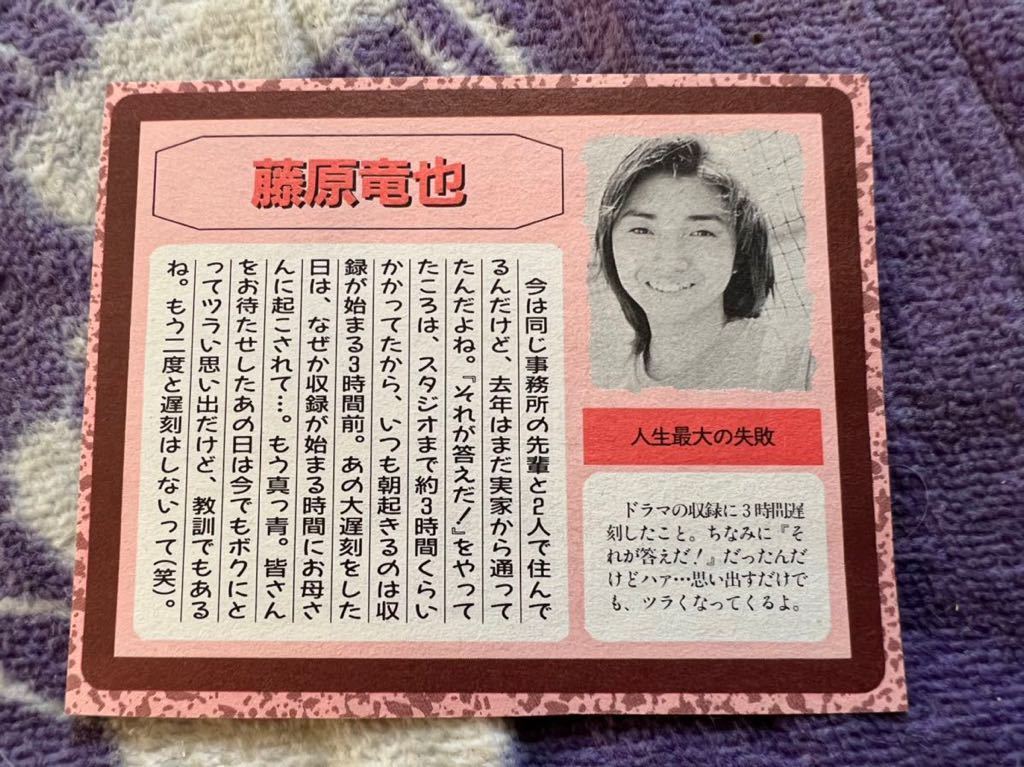 藤原竜也
今は同じ事務所の先輩と2人で住んで
るんだけど、去年はまだ実家から通って
たんだよね。『それが答えだ!』をやって
たころは、スタジオまで約3時間くらい
かかってたから、いつも朝起きるのは収
録が始まる3時間前。あの大遅刻をした
日は、なぜか収録が始まる時間にお母さ
んに起こされて…。もう真っ青。皆さん
をお待たせしたあの日は今でもボクにと
ってツラい思い出だけど、教訓でもある
ね。もう二度と遅刻はしないって(笑)。
人生最大の失敗
ドラマの収録に3時間遅
刻したこと。ちなみに『そ
れが答えだ!』だったんだ
けどハァ…思い出すだけで
も、ツラくなってくるよ。